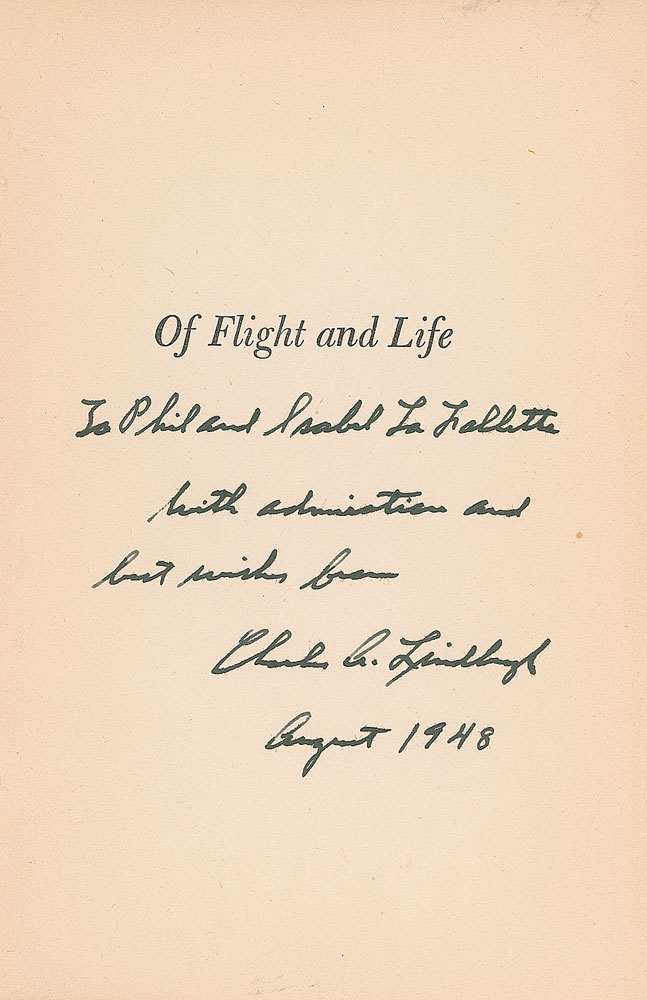 Of Flight and Life
To Phil and Isabel La Follette
with admiration and
best wishes from
Charles A. Lindbergh
August 1948